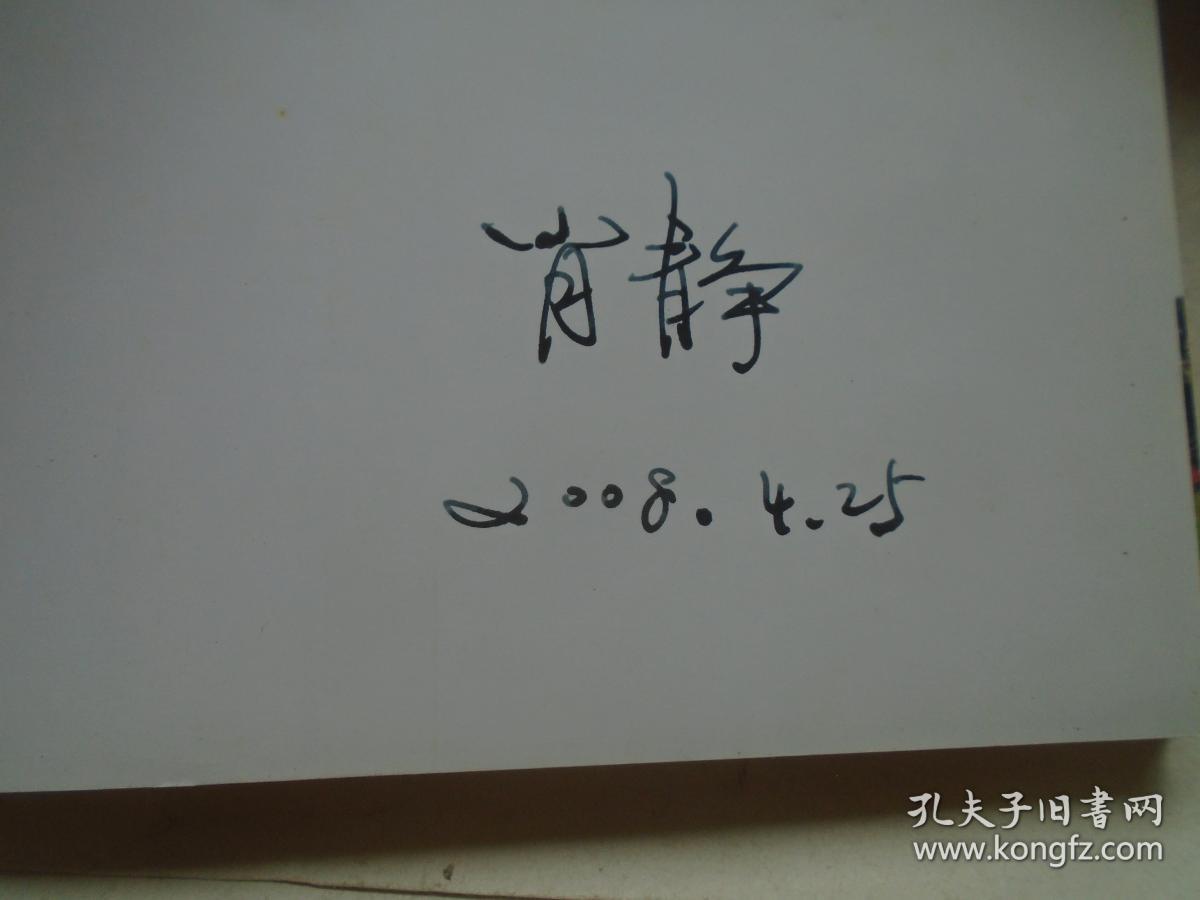 肖静
2008.4.25
孔夫子旧書网
www.kongfz.com